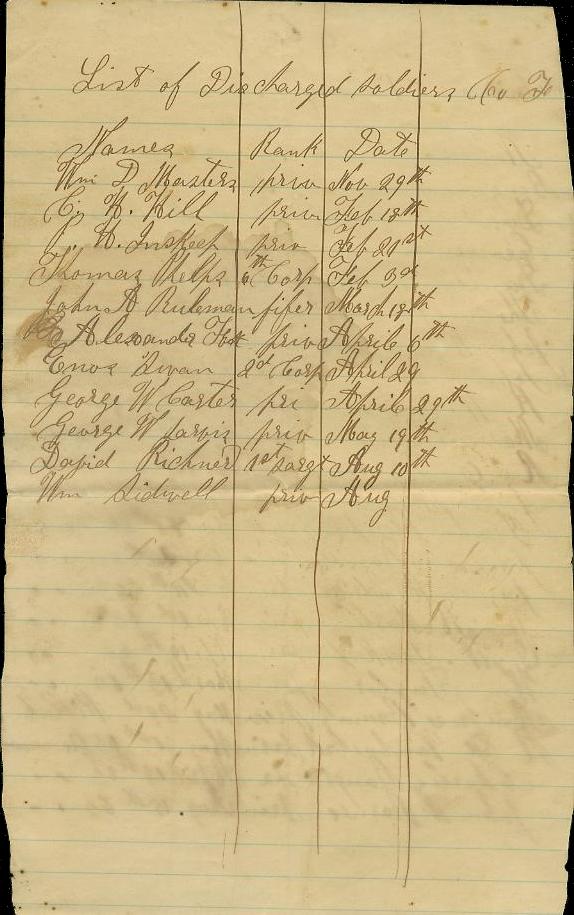 List of Discharged soldiers Co F
Names Rank Date
Wm D Masters priv Nov 29th
W. Hill priv Feb 18th
J. W. Inskeep priv Feb 21st
Thomas Phelps 6th Corp Feb 3d
John A Ruleman fifer March 18th
Alexander priv April 6th
Enos Swan 2d Corp April 29
George W Carter pri April 29th
George W Jarvis priv May 19th
David Richner 1st sargt Aug 10th
Wm Sidwell priv Aug